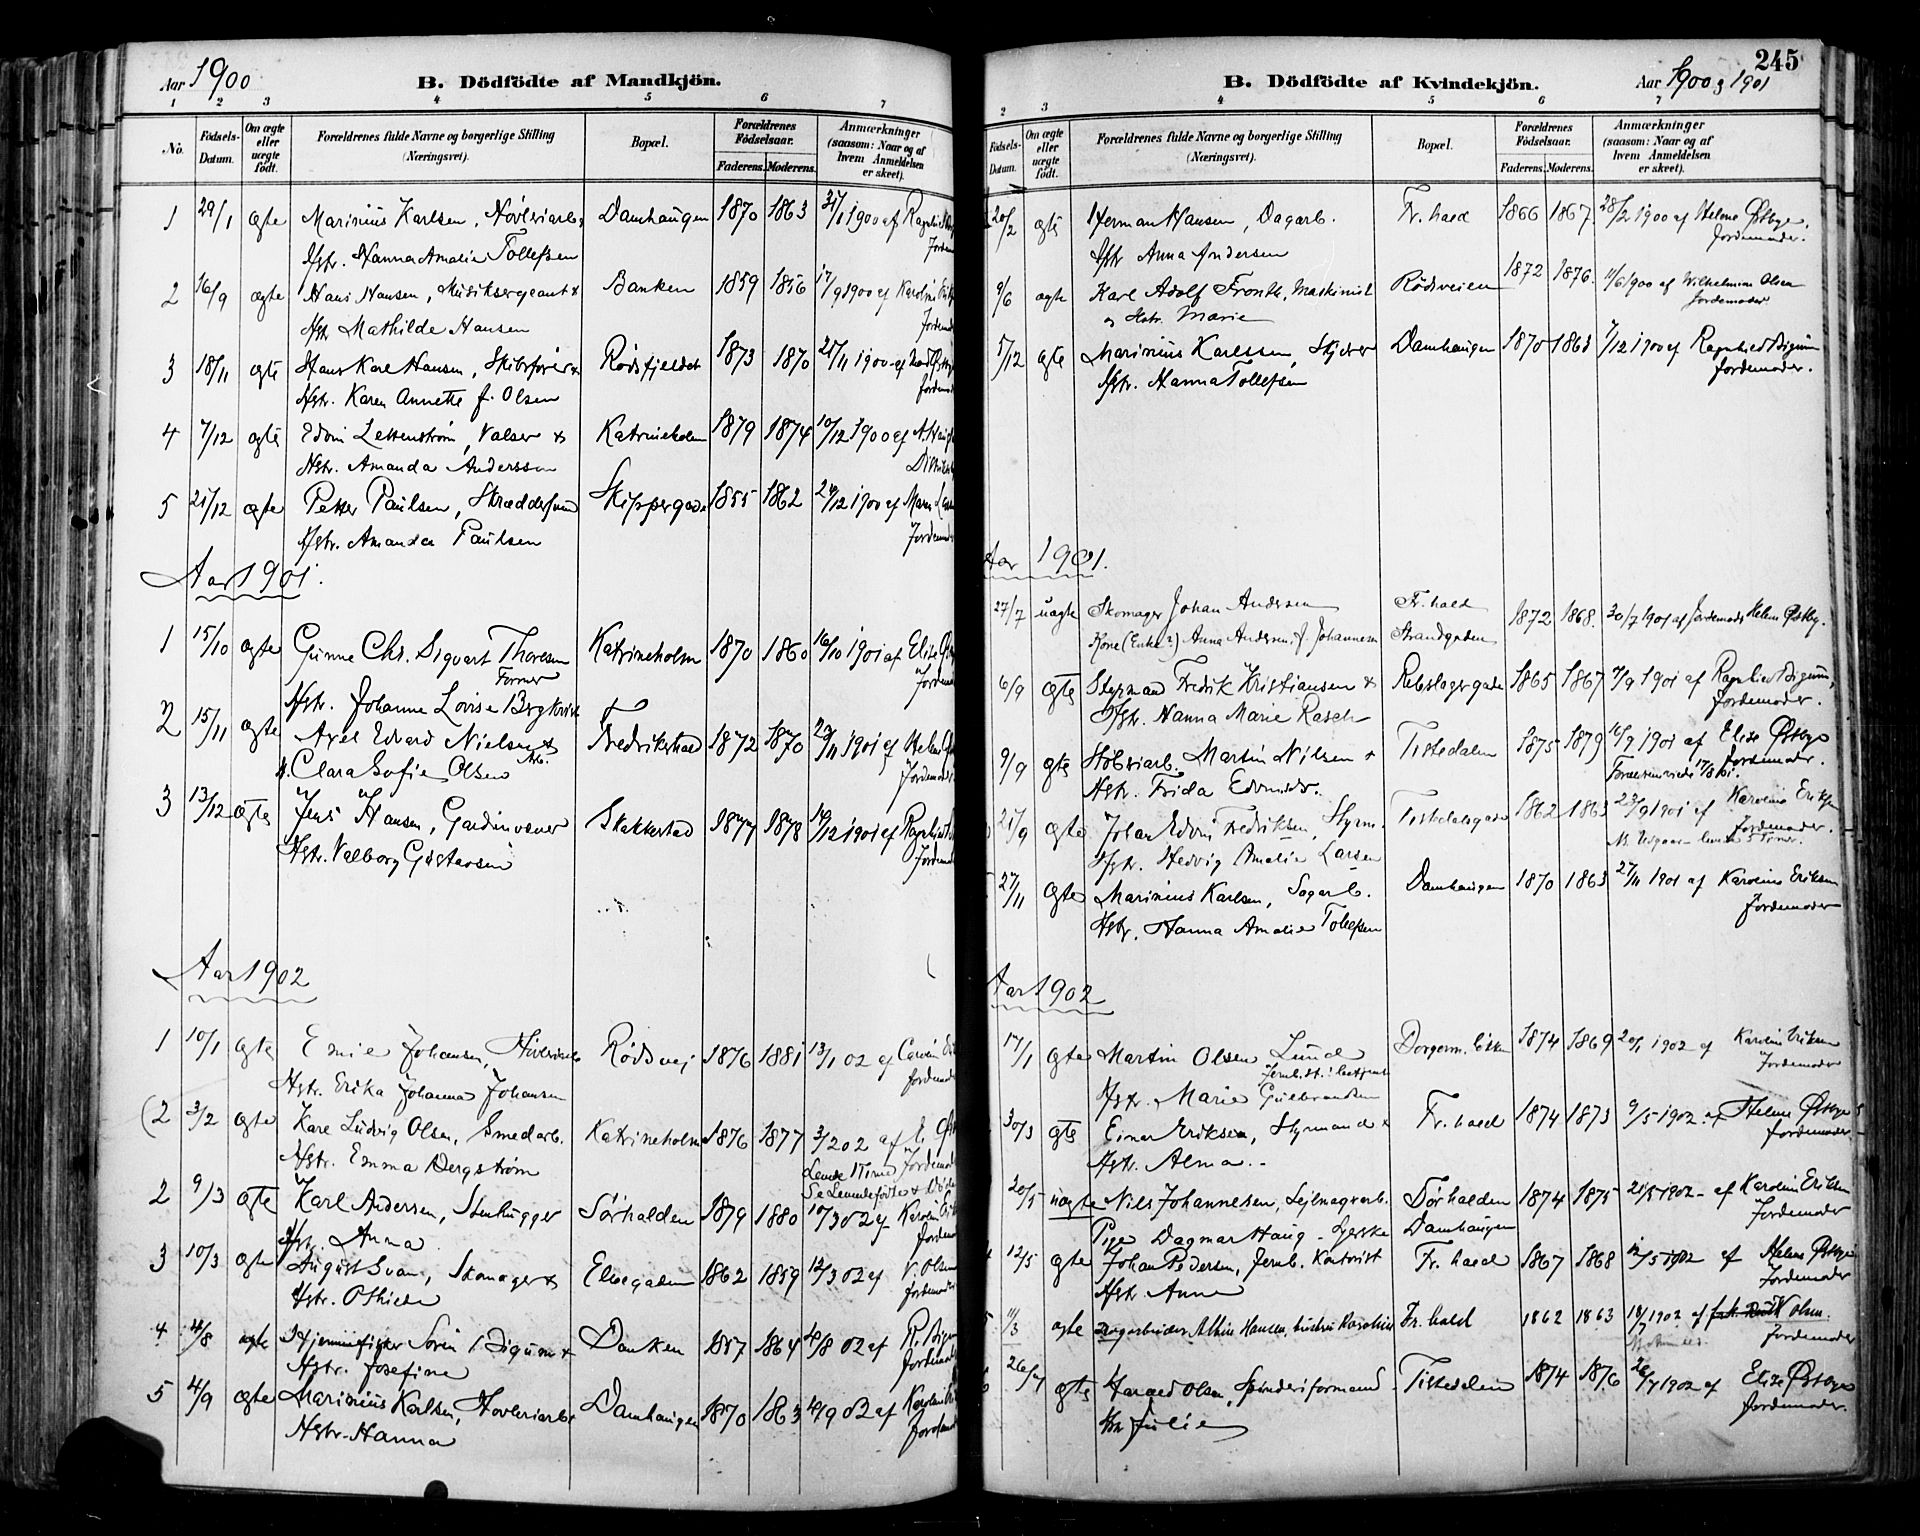 Aar 1900
B. Dödfödte af Mandkjön.
1 2 3 4 5 6 7
No. Födsels-Datum. Om ægte eller uægte födt. Forældrenes fulde Navne og borgerlige Stilling (Næringsvei). Bopæl. Forældrenes Födselsaar. Faderens. Moderens. Anmærkninger (saasom: Naar og af hvem Anmeldelsen er skeet).
1 29/1 ægte Marinius Karlsen, Høvleriarb. Damhaugen 1870 1863 31/1 1900 af
Hstr. Hanna Amalia Tollefsen
2 16/9 ægte Hans Hansen, Musiksergeant & Banken 1859 1856 17/9 1900 af Karoline
Hstr Mathilde Hansen
3 18/11 ægte Hans Karl Hansen, Skibsfører & Rødsfjeldet 1873 1870 21/11 1900 af
Hstr. Karen Annette f. Olsen
4 7/12 ægte Edvin Zetterström, Valser & Katrineholm 1879 1874 10/12 1900 af
Hstr. Amanda Andersson
5 21/12 ægte Petter Paulsen, Skræddersvend Skippergade 1855 1862 24/12 1900 af Maren
Hstr. Amanda Paulsen
Aar 1901.
1 15/10 ægte Gunne Chr. Sigvart Thoresen Katrineholm 1870 1860 16/10 1901 af Elise
Former
Hstr. Johanne Lovise Bergkvist
2 15/11 ægte Axel Edvard Nielsen & Fredrikstad 1872 1870 23/11 1901 af Helene
Arb.
H. Clara Sofie Olsen
3 13/12 ægte Jens Hansen, Gardinvæver Stakkestad 1877 1878 14/12 1901 af
Hstr. Valborg Gustavsen
Aar 1902
1 10/1 ægte Emil Johansen, Rødsvej 1876 1881 13/1 02 af
Hstr. Erika Johanna Johansen
(2 3/2 ægte Karl Ludvig Olsen, Smedarb. Katrineholm 1876 1877 3/2 02 af E.
Hstr. Emma Bergström Levede 1 Time
Se Levendefødte &
2 9/3 ægte Karl Andersen, Stenhugger Sørhalden 1879 1880 10/3 02 af
Hstr. Anna
3 10/3 ægte August Svan, Skomager & Elvegaden 1862 1859 12/3 02 af V. Olsen
Hstr. Othilde
4 4/8 ægte Søren Bigum & Banken 1857 1864 4/8 02 af R. Bigum
Hstr. Josefine
5 4/9 ægte Marinius Karlsen, Høvleriarb. Damhaugen 1870 1863 4/9 02 af
Hstr. Hanna
245
B. Dödfödte af Kvindekjön.
Aar 1900 og 1901
2 3 4 5 6 7
Födsels-Datum. Om ægte eller uægte födt. Forældrenes fulde Navne og borgerlige Stilling (Næringsvei). Bopæl. Forældrenes Födselsaar. Faderens. Moderens. Anmærkninger (saasom: Naar og af hvem Anmeldelsen er skeet).
20/2 ægte Herman Hansen, Dagarb. Fr.hald 1866 1867. 28/2 1900 af Helene Østbye,
Jordemoder.
Hstr Anna Andersen
9/6 ægte Karl Adolf Maskinist Rødsveien 1872 1876. 11/6 1900 af Wilhelmine Olsen
Jordemoder
og Hstr. Marie
5/12 ægte Marinius Karlssen, Damhaugen 1870 1863 7/12 1900 af Ragnhild Bigum
Jordemoder.
Hstr. Hanna Tollefsen
Aar 1901.
27/7 uægte Skomager Johan Andersen Fr.hald 1872 1868. 30/7 1901 af Jordemoder Helene Østby.
Kone (Enke?) Anna Andersen f. Johannesen Strandgaden
6/9 ægte Styrmand Fredrik Kristiansen & Rebslagergade 1865 1867 7/9 1901 af Ragnhild Bigum,
Jordemoder.
Hstr. Hanna Marie Rasch
9/9 ægte Høvleriarb. Martin Nilsen & Tistedalen 1875 1879 16/9 1901 af Elise Østbye
Jordemoder.
Hstr. Frida
21/9 ægte Johan Edvin Fredriksen, Styrm. Tistedalsgade 1862 1863 23/9 1901 af Karoline Eriksen
Jordemoder.
Hstr. Hedvig Amalie Larsen
27/11 ægte Marinius Karlsen, Sagarb. Damhaugen 1870 1863 27/11 1901 af Karoline Eriksen
Jordemoder
Hstr. Hanna Amalie Tollefsen
Aar 1902
17/1 ægte Martin Olsen Lund 1874 1869 20/1 1902 af Karoline Eriksen
Jordemoder
Hstr. Marie Gulbrandsen
30/3 ægte Einar Eriksen, Styrmand & Fr.hald 1874 1873 9/5 1902 af Helene Østbye
Jordemoder
Hstr. Alma
20/5 uægte Nils Johannesen, Sejlmagerarb. Sørhalden 1874 1875 21/5 1902 af Karoline Eriksen
Jordemoder
Pige Dagmar Haug Damhaugen
12/5 ægte Johan Pedersen, Jernb. Kontorist Fr.hald 1867 1868 12/5 1902 af Helene Østbye
Jordemoder
Hstr. Anna
11/3 ægte Hansen, hustru Karoline Fr.hald 1862 1863 18/7 1902 af V. Olsen.
Jordemoder
26/7 ægte Harald Olsen, Spinderiformand Tistedalen 1874 1876 26/7 1902 af Elise Østbye
Jordemoder.
Julie